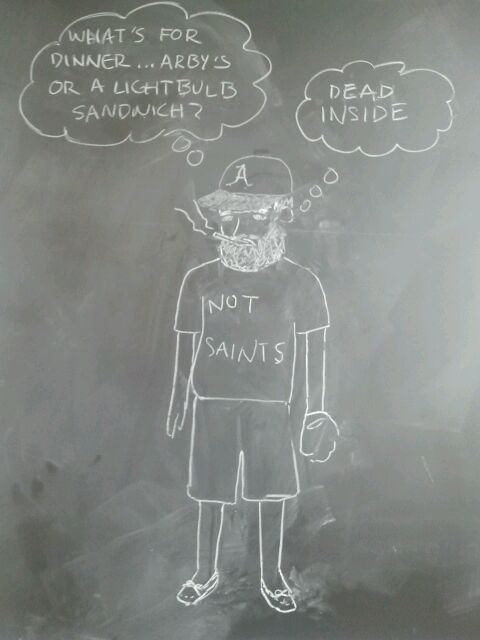 WHAT'S FOR
DINNER... ARBY'S
OR A LIGHTBULB
SANDWICH?
DEAD
INSIDE
A
NOT
SAINTS